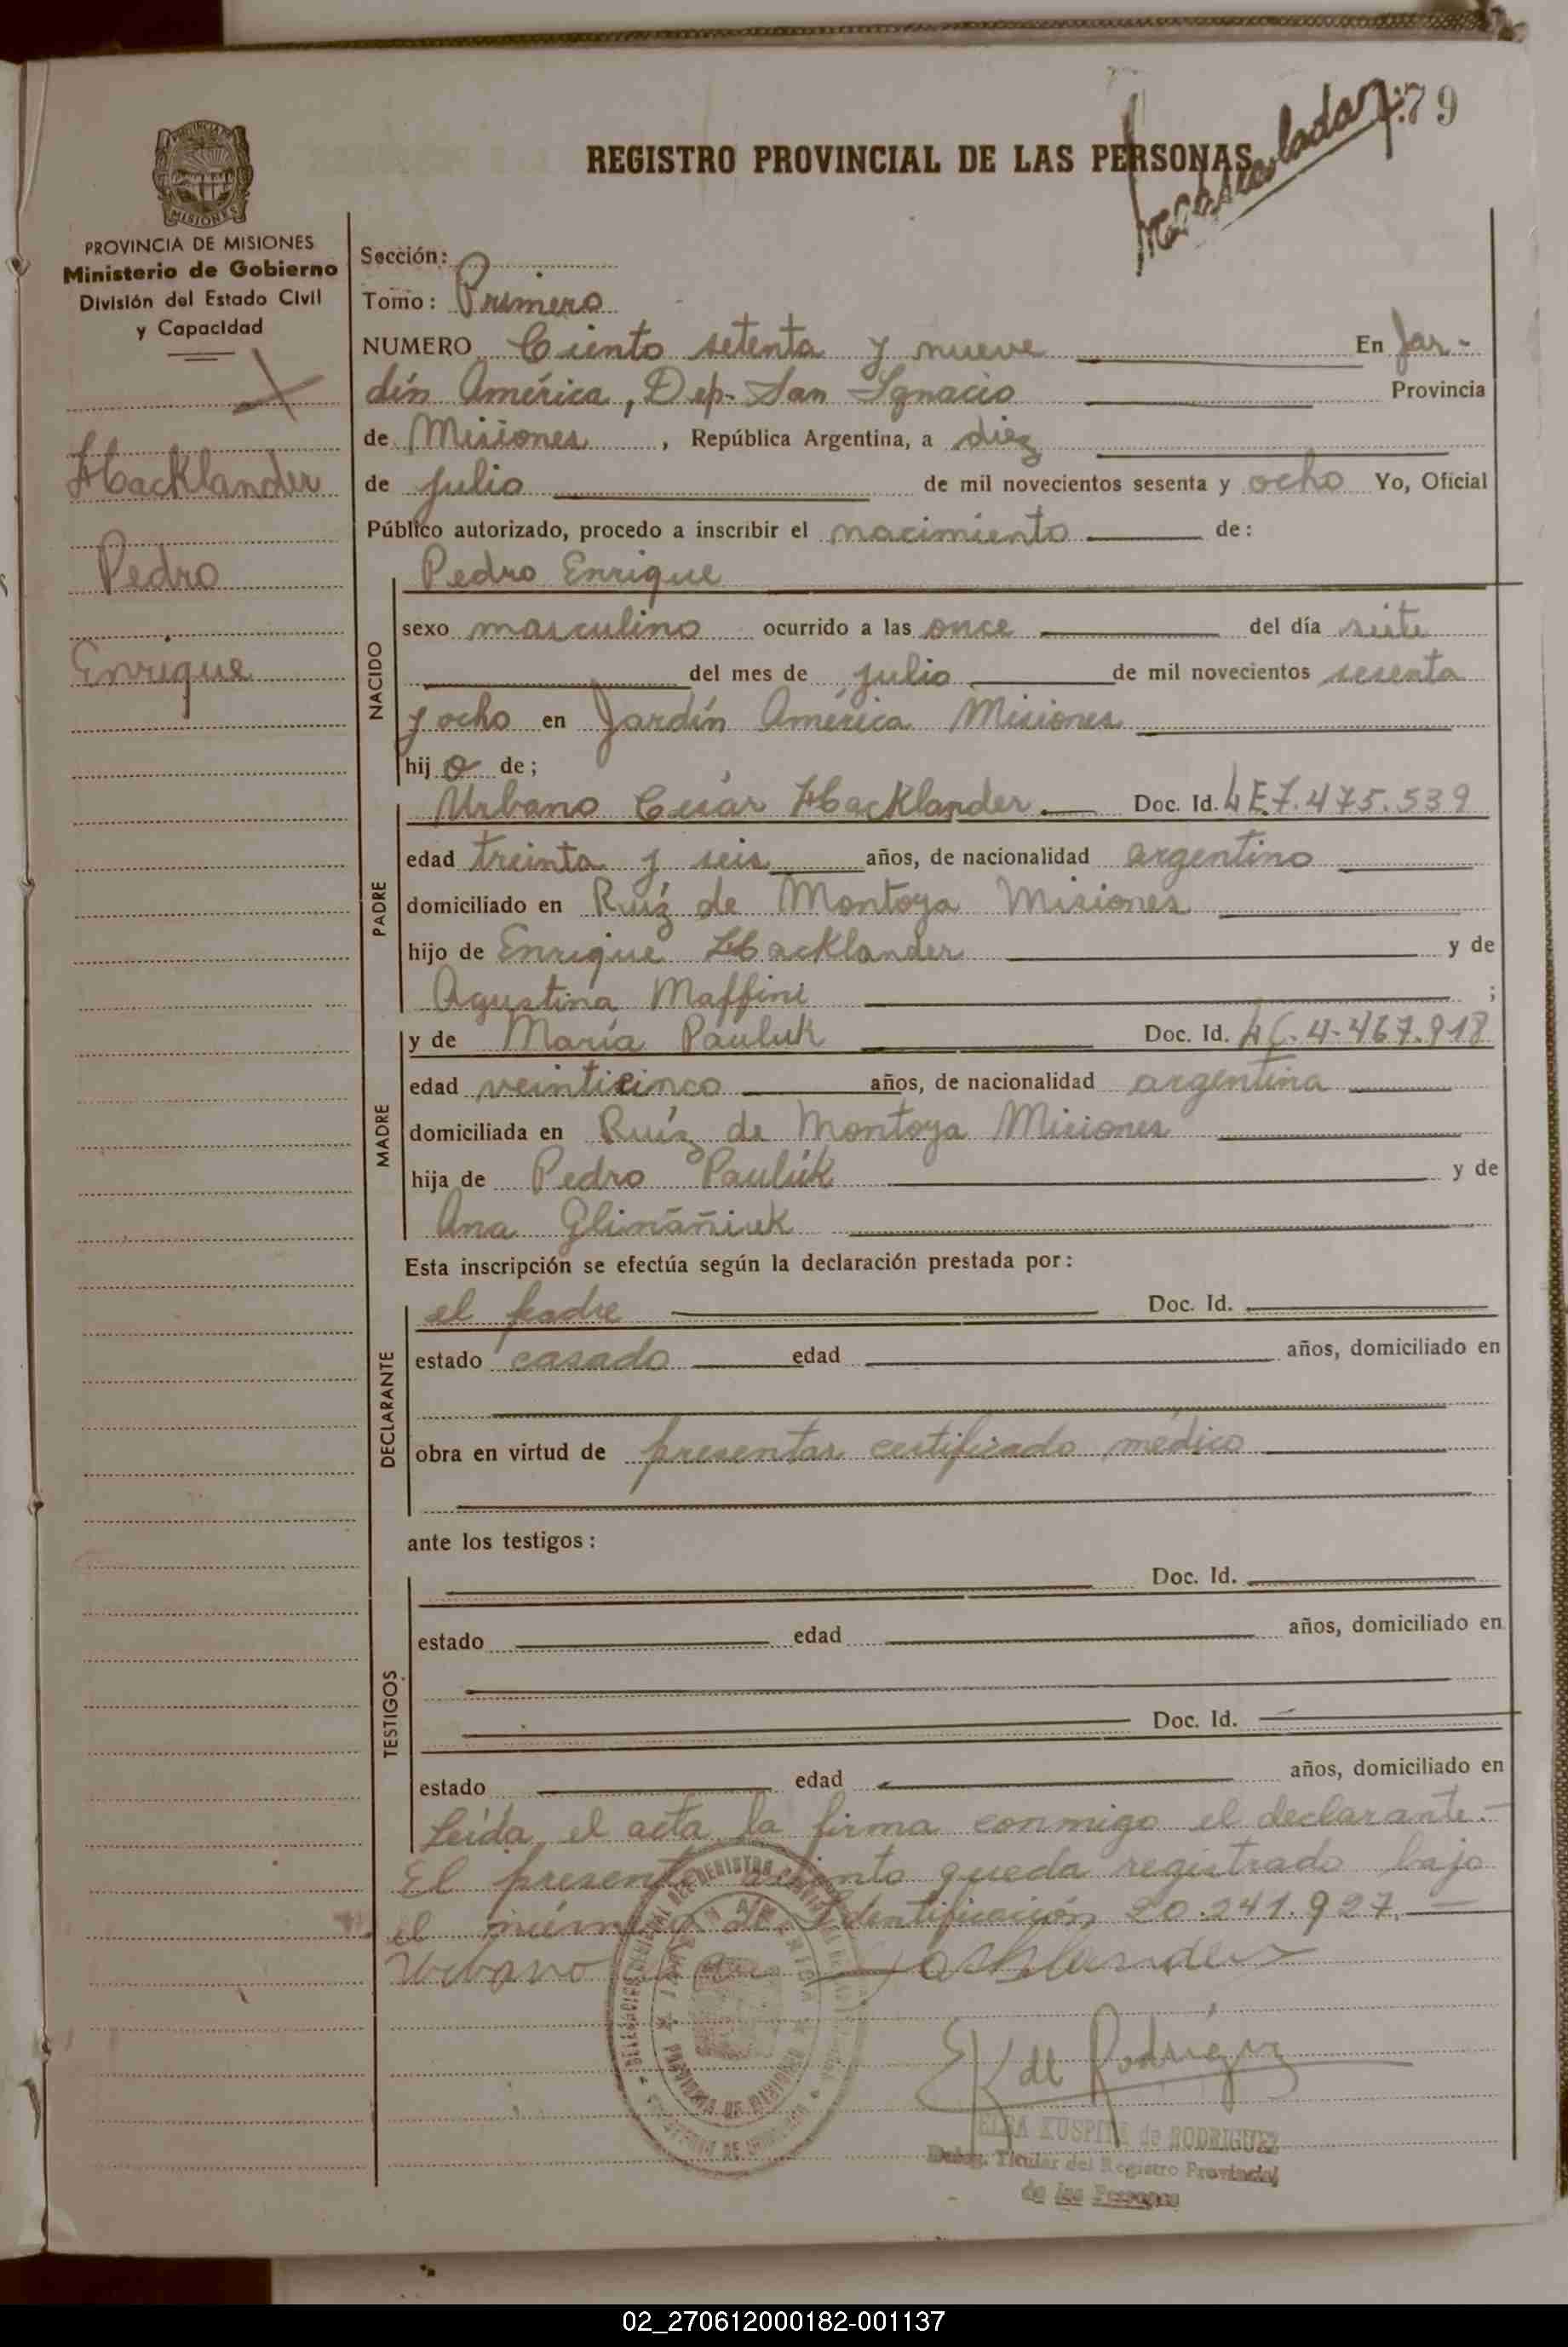 179
Matriculado
REGISTRO PROVINCIAL DE LAS PERSONAS
PROVINCIA DE MISIONES
Ministerio de Gobierno
División del Estado Civil
y Capacidad
Hacklander
Pedro
Enrique
Sección:
Tomo: Primero
NUMERO Ciento setenta y nueve En Jar-
dín América, Dep. San Ignacio Provincia
de Misiones, República Argentina, a diez
de julio de mil novecientos sesenta y ocho Yo, Oficial
Público autorizado, procedo a inscribir el nacimiento de:
NACIDO
Pedro Enrique
sexo masculino ocurrido a las once del día siete
del mes de julio de mil novecientos sesenta
y ocho en Jardín América Misiones
hijo de;
PADRE
Urbano César Hacklander Doc. Id. LE 7.475.539
edad treinta y seis años, de nacionalidad argentino
domiciliado en Ruíz de Montoya Misiones
hijo de Enrique Hacklander y de
Agustina Maffini ;
MADRE
y de María Pauluk Doc. Id. LC. 4.467.918
edad veinticinco años, de nacionalidad argentina
domiciliada en Ruíz de Montoya Misiones
hija de Pedro Paulúk y de
Ana
Esta inscripción se efectúa según la declaración prestada por:
DECLARANTE
el padre Doc. Id.
estado casado edad años, domiciliado en
obra en virtud de presentar certificado médico
ante los testigos:
TESTIGOS
Doc. Id.
estado edad años, domiciliado en
Doc. Id.
estado edad años, domiciliado en
Leída el acta la firma conmigo el declarante.-
El presente asiento queda registrado bajo
el número de Identificación 20.241.927.—
Urbano Cesar Hacklander
EK de Rodríguez
ELSA KUSPITA de RODRIGUEZ
Deleg. Titular del Registro Provincial
de las Personas
02_270612000182-001137